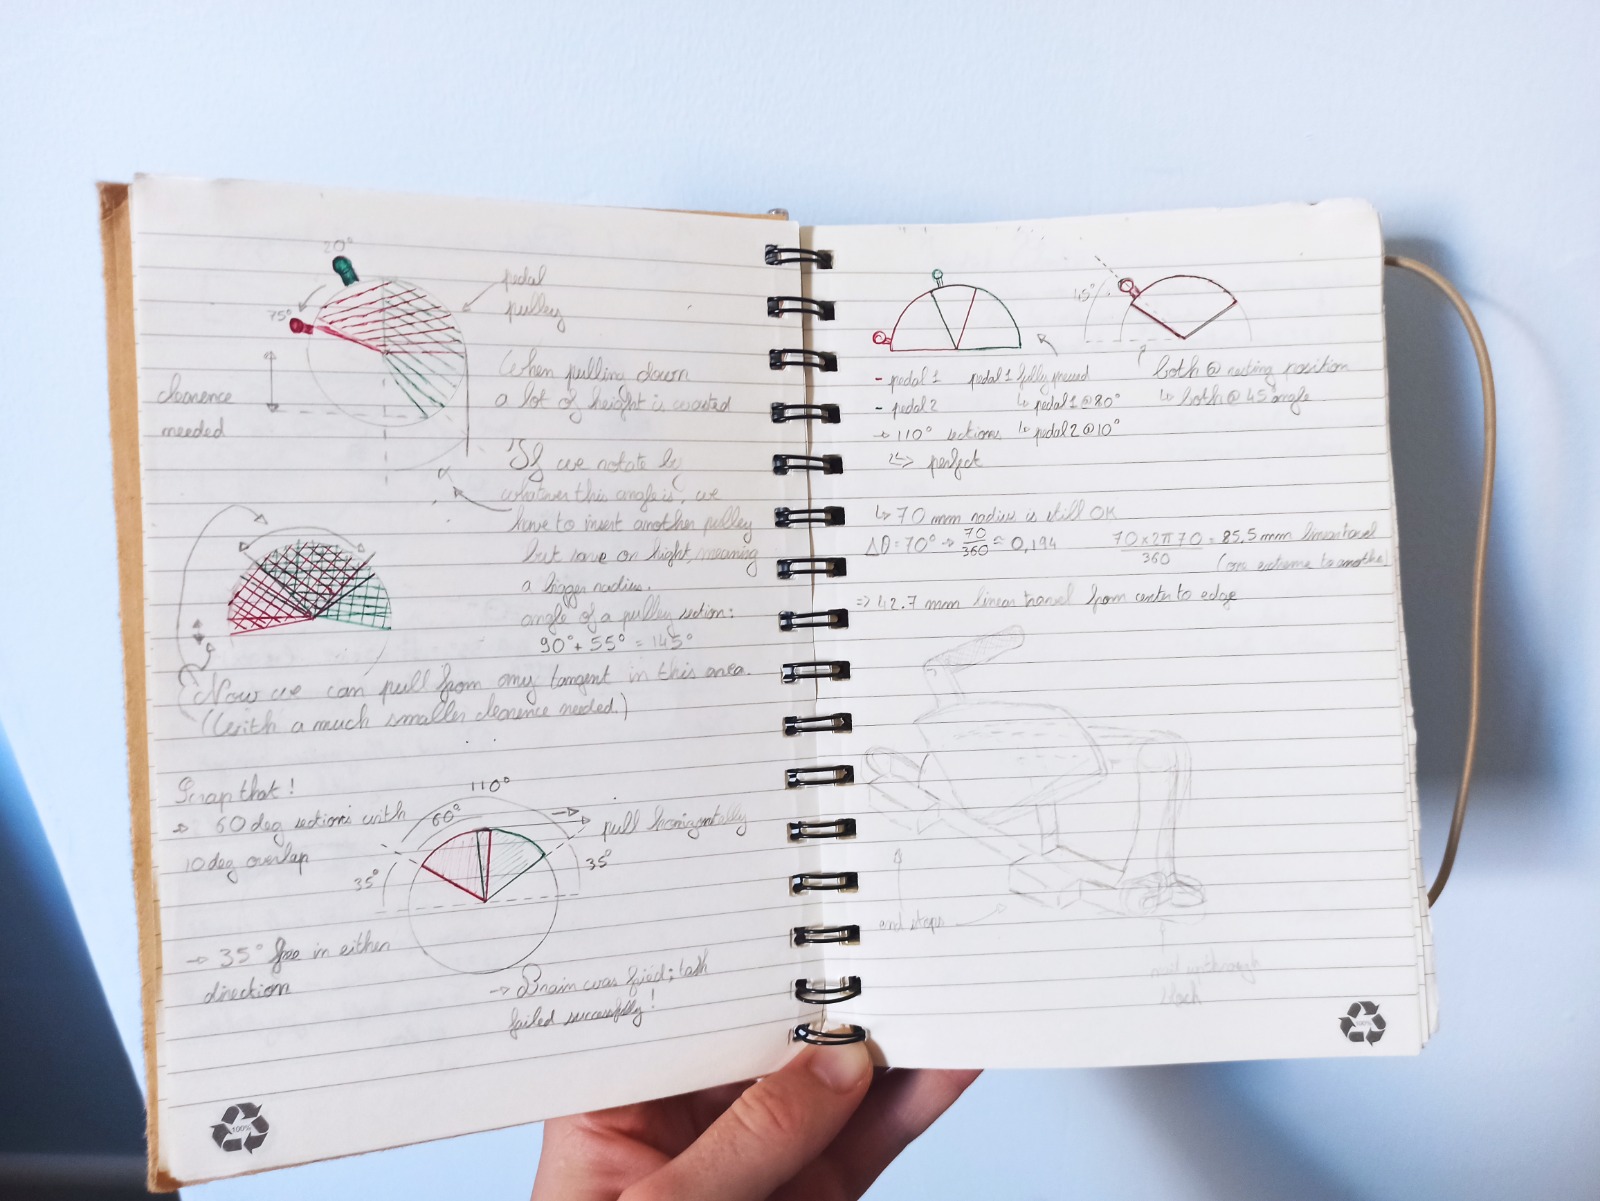 20°
75°
pedal
pulley
clearence
needed
When pulling down
a lot of height is wasted
α
If we rotate by
whatever this angle is, we
have to insert another pulley
but save on hight, meaning
a bigger radius.
angle of a pulley section:
90° + 55° = 145°
Now we can pull from any tangent in this area.
(With a much smaller clearence needed.)
Scrap that!
→ 60 deg sections with
10 deg overlap
110°
60°
35°
35°
pull horizontally
→ 35° free in either
direction
→ Brain was fried; task
failed successfully!
100%
45°
- pedal 1
- pedal 2
→ 110° sections
↳ perfect
pedal 1 fully pressed
↳ pedal 1 @ 80°
↳ pedal 2 @ 10°
both @ resting position
↳ both @ 45° angle
↳ 70 mm radius is still OK
ΔD = 70° → 70/360 ≈ 0,194
70 × 2π 70 / 360 = 85,5 mm linear travel
(one extreme to another)
=> 42.7 mm linear travel from center to edge
end stops
100%